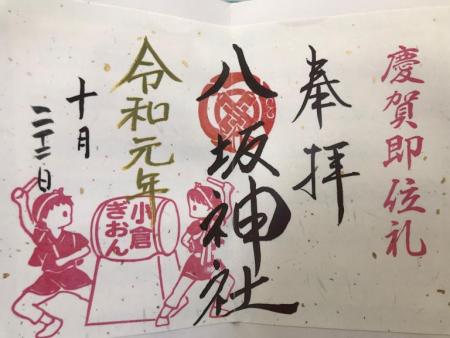 慶賀即位礼
奉拝
八坂神社
令和元年
十月
二十二日
小倉
ぎおん